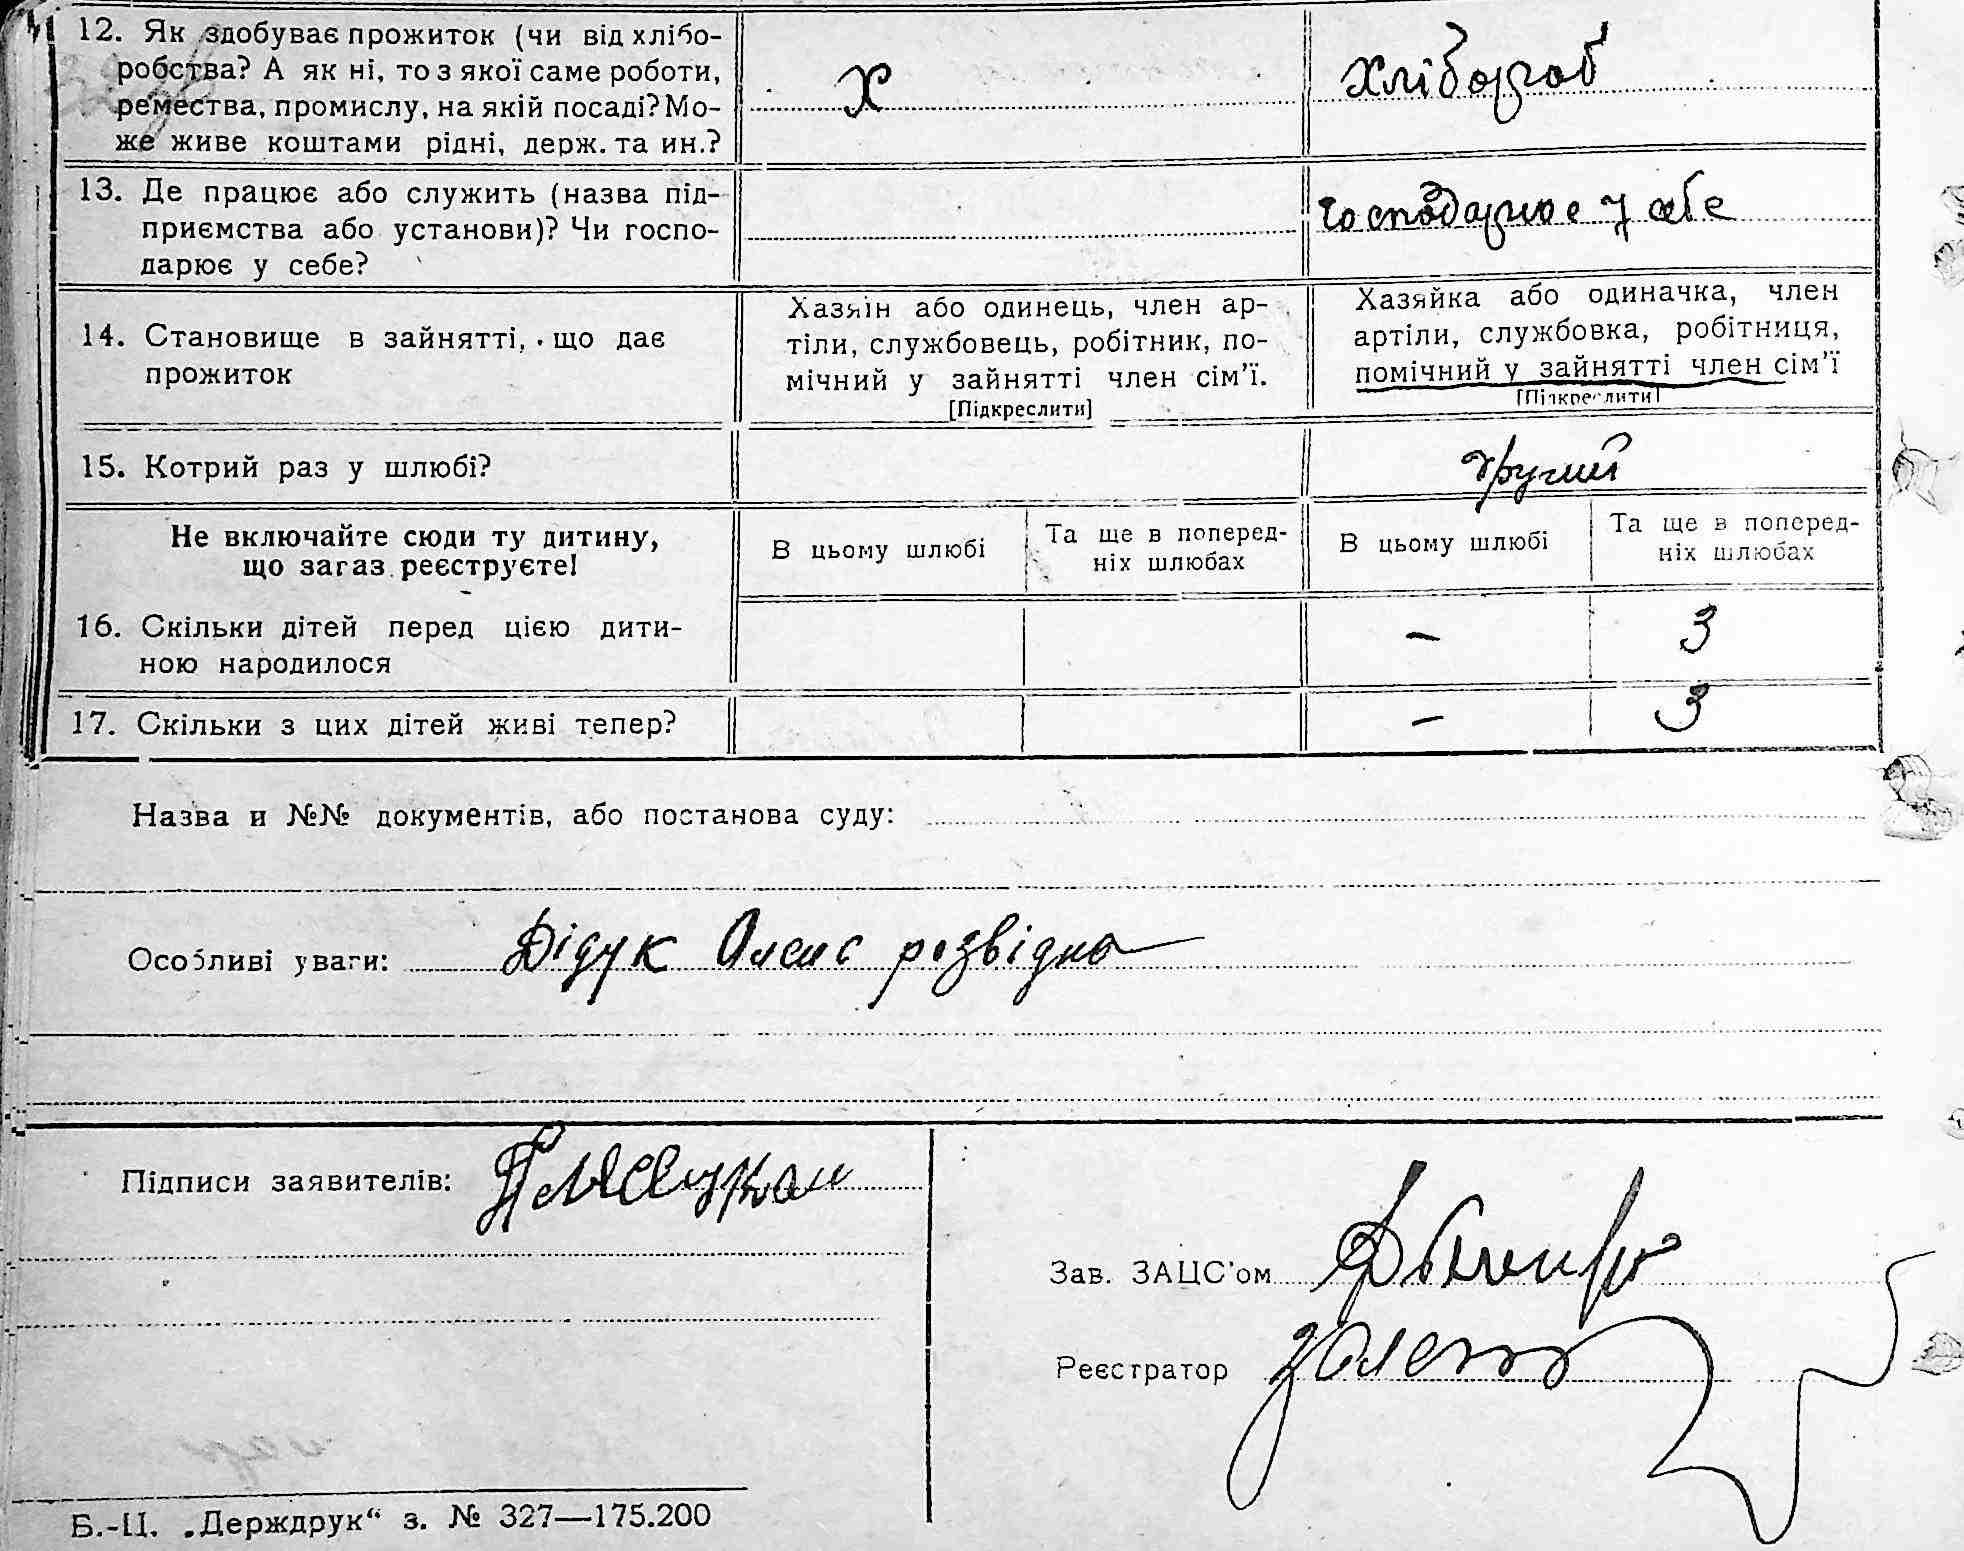 12. Як здобуває прожиток (чи від хлібо-
робства? А як ні, то з якої саме роботи,
ремества, промислу, на якій посаді? Мо-
же живе коштами рідні, держ. та ин.?
Х
Хлібороб
13. Де працює або служить (назва під-
приємства або установи)? Чи госпо-
дарює у себе?
господарює у себе
14. Становище в зайнятті, що дає
прожиток
Хазяїн або одинець, член ар-
тіли, службовець, робітник, по-
мічний у зайнятті член сім'ї.
[Підкреслити]
Хазяйка або одиначка, член
артіли, службовка, робітниця,
помічний у зайнятті член сім'ї
[Підкреслити]
15. Котрий раз у шлюбі?
другий
Не включайте сюди ту дитину,
що загаз реєструєте!
В цьому шлюбі
Та ще в поперед-
ніх шлюбах
В цьому шлюбі
Та ще в поперед-
ніх шлюбах
16. Скільки дітей перед цією дити-
ною народилося
– 3
17. Скільки з цих дітей живі тепер?
– 3
Назва и №№ документів, або постанова суду:
Особливі уваги: Дідук розвідна
Підписи заявителів:
Зав. ЗАЦС'ом
Реєстратор
Б.-Ц. „Держдрук“ з. № 327—175.200